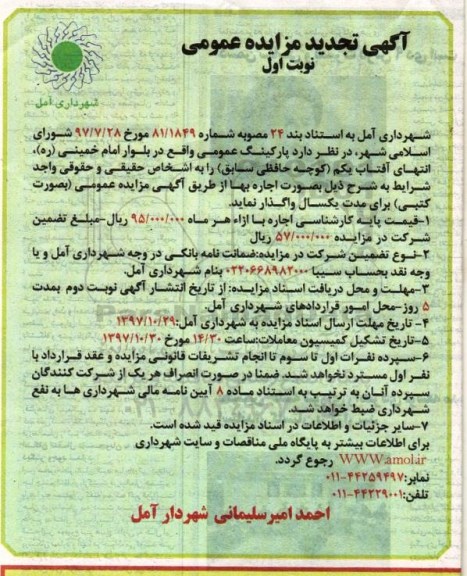 آگهی تجدید مزایده عمومی
نوبت اول
شهرداری آمل
شهرداری آمل به استناد بند ۲۴ مصوبه شماره ۸۱/۱۸۴۹ مورخ ۹۷/۷/۲۸ شورای
اسلامی شهر، در نظر دارد پارکینگ عمومی واقع در بلوار امام خمینی (ره)،
انتهای آفتاب یکم (کوچه حافظی سابق) را به اشخاص حقیقی و حقوقی واجد
شرایط به شرح ذیل بصورت اجاره بها از طریق آگهی مزایده عمومی (بصورت
کتبی) برای مدت یکسال واگذار نماید.
۱-قیمت پایه کارشناسی اجاره با ازاء هر ماه ۹۵/۰۰۰/۰۰۰ ریال-مبلغ تضمین
شرکت در مزایده ۵۷/۰۰۰/۰۰۰ ریال
۲-نوع تضمین شرکت در مزایده:ضمانت نامه بانکی در وجه شهرداری آمل و یا
وجه نقد بحساب سیبا ۰۲۲۰۶۶۸۹۸۲۰۰۰ بنام شهرداری آمل.
۳-مهلت و محل دریافت اسناد مزایده: از تاریخ انتشار آگهی نوبت دوم بمدت
۵ روز-محل امور قراردادهای شهرداری آمل.
۴- تاریخ مهلت ارسال اسناد مزایده به شهرداری آمل:۱۳۹۷/۱۰/۲۹
۵-تاریخ تشکیل کمیسیون معاملات:ساعت ۱۴/۳۰ مورخ ۱۳۹۷/۱۰/۳۰
۶-سپرده نفرات اول تا سوم تا انجام تشریفات قانونی مزایده و عقد قرارداد با
نفر اول مسترد نخواهد شد. ضمنا در صورت انصراف هر یک از شرکت کنندگان
سپرده آنان به ترتیب به استناد ماده ۸ آیین نامه مالی شهرداری ها به نفع
شهرداری ضبط خواهد شد.
۷-سایر جزئیات و اطلاعات در اسناد مزایده قید شده است.
برای اطلاعات بیشتر به پایگاه ملی مناقصات و سایت شهرداری
WWW.amol.ir رجوع گردد.
نمابر:۴۴۲۵۹۴۹۷-۰۱۱
تلفن:۴۴۲۲۹۰۰۱-۰۱۱
احمد امیرسلیمانی شهردار آمل